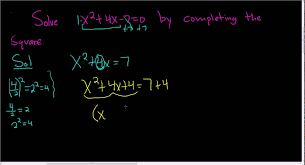 Solve 1x²+4x-7=0 by completing the
+7 +7
Square
Sol
x²+4x = 7
(4/2)² = 2² = 4
x²+4x+4 = 7+4
4/2 = 2
2² = 4
(x